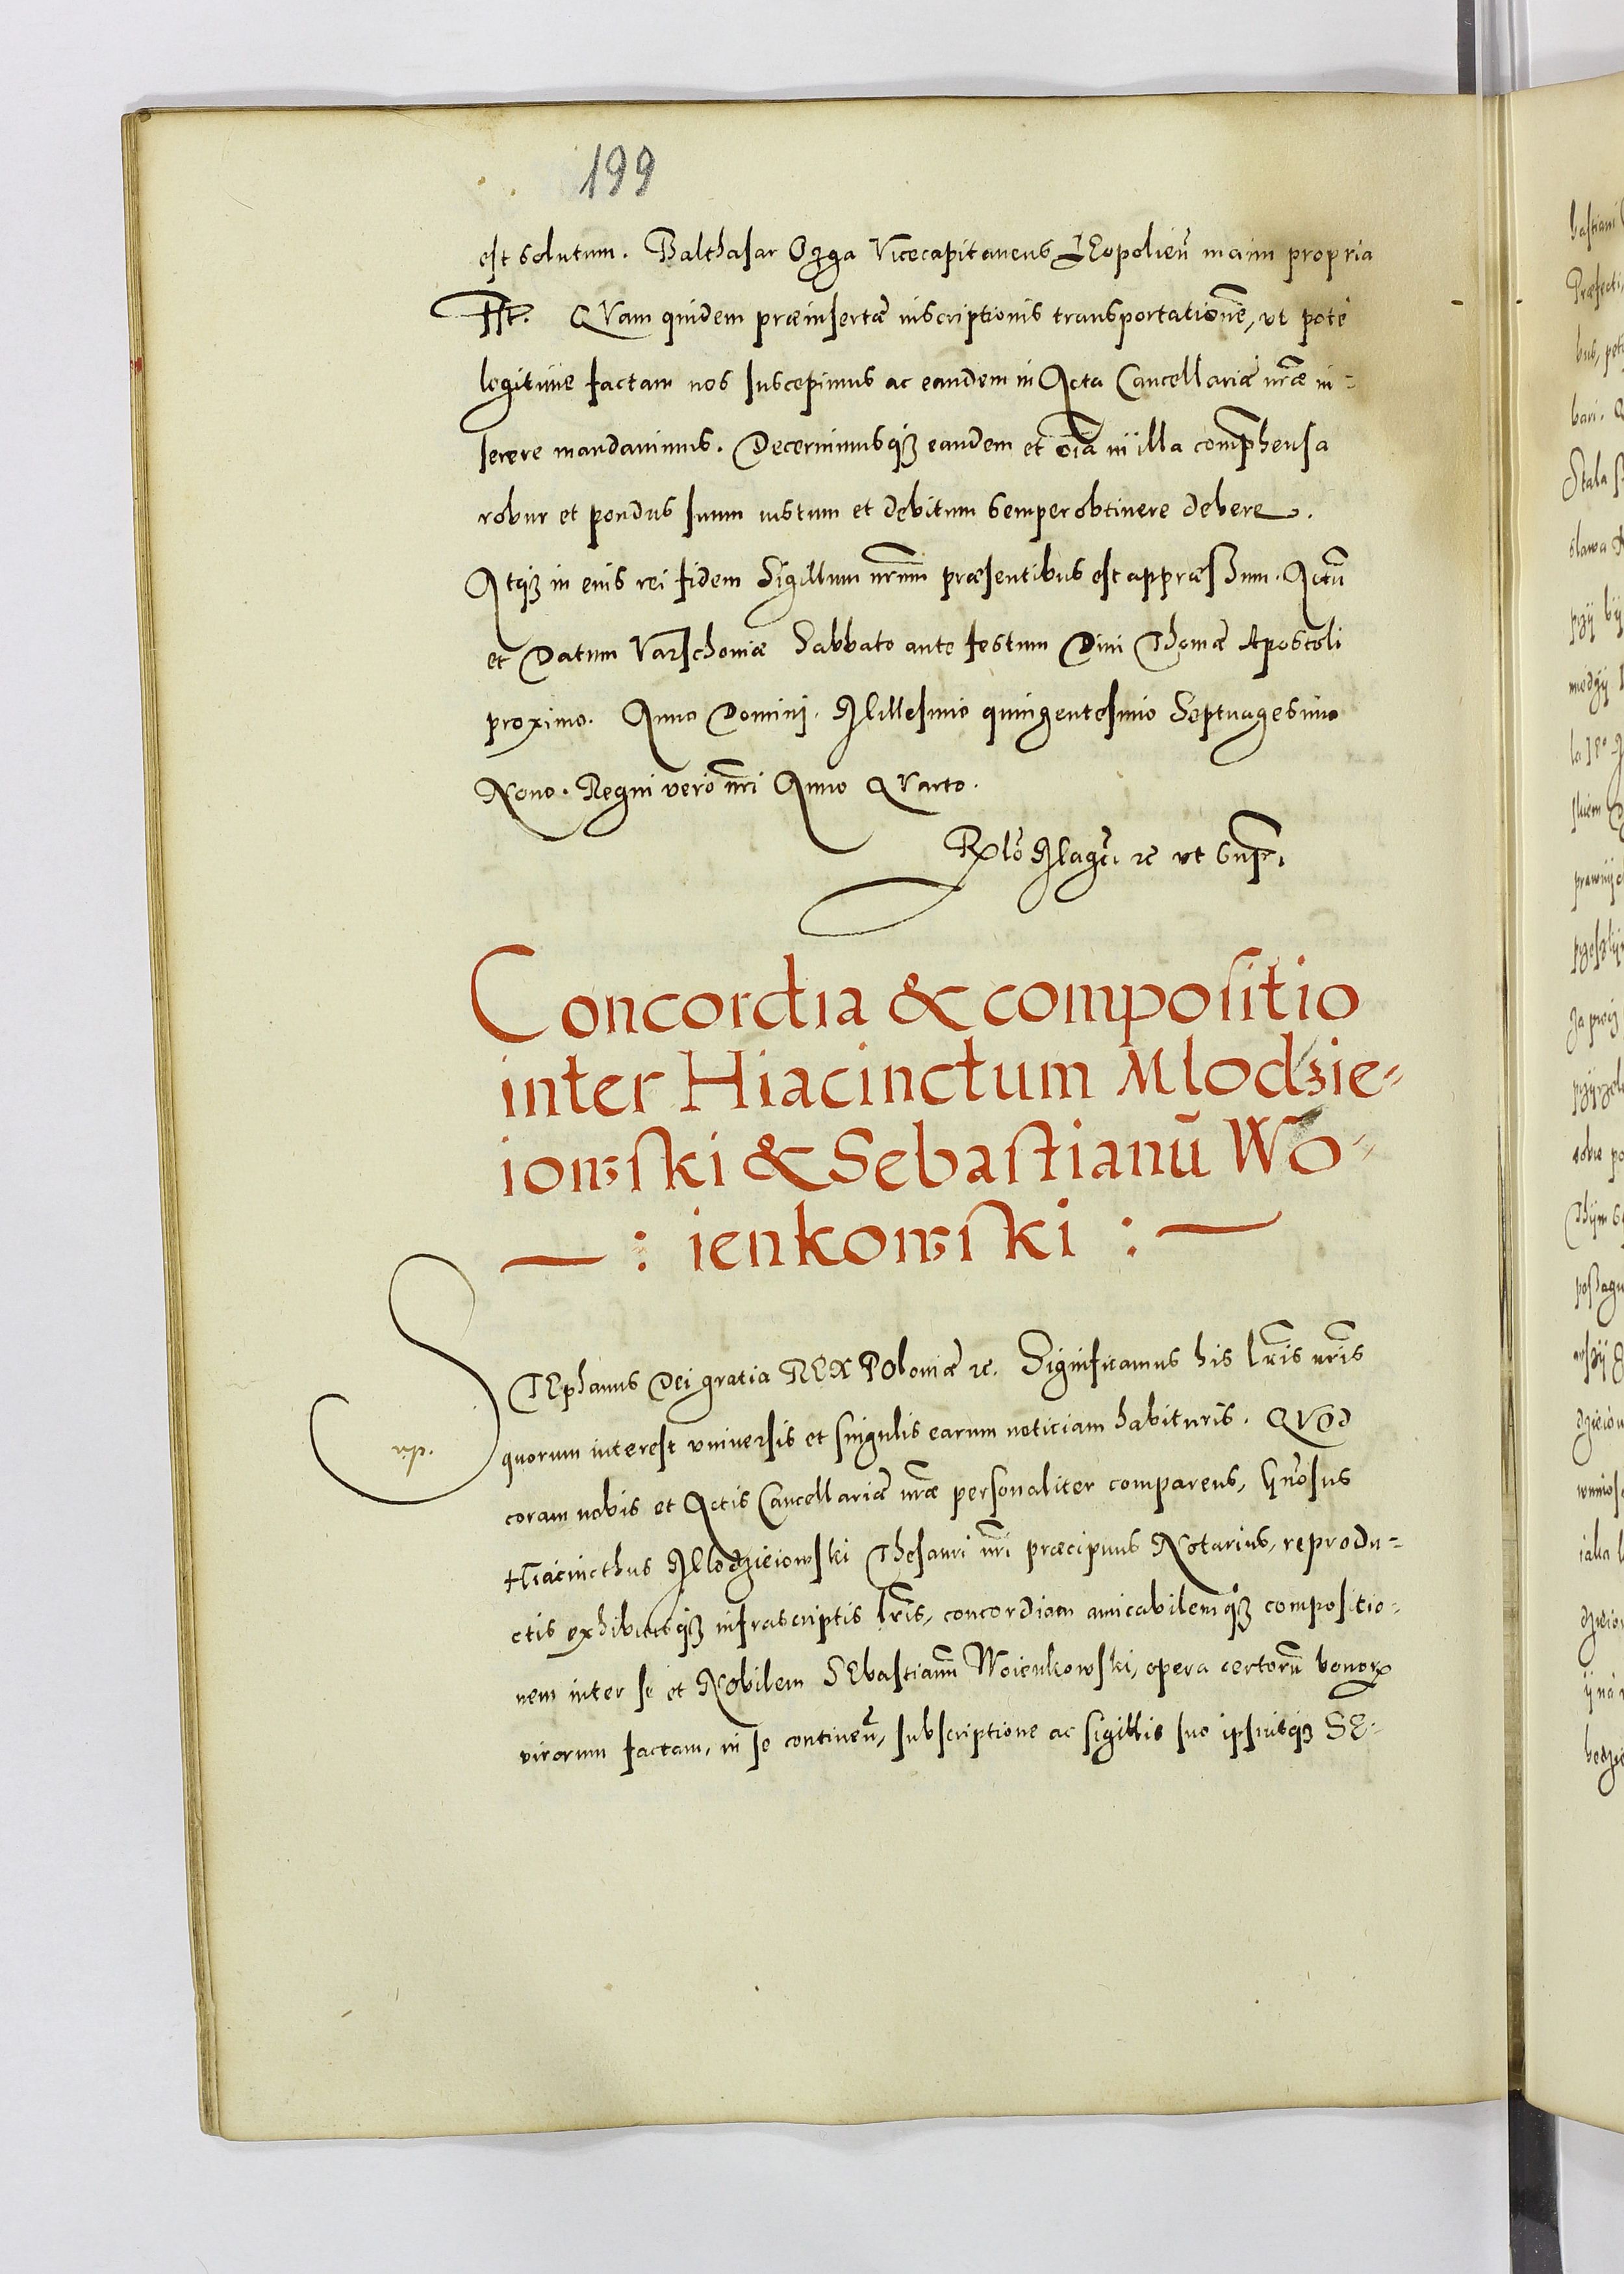 199
est solutum. Balthasar Ozga Vicecapitaneus LEopolień manu propria
sst. QVam quidem præinsertæ inscriptionis transportationē, ut pote
legitime factam nos suscepimus ac eandem in Acta Cancellariæ nr̃æ in-
serere mandavimus. Decernimusqȝ eandem et oĩa in illa comp̃hensa
robur et pondus suum iustum et debitum semper obtinere debere.
Atqȝ in eius rei fidem Sigillum nr̃um præsentibus est appræssum. Actũ
et Datum Varschoviæ Sabbato ante festum Divi Thomæ Apostoli
proximo. Anno Domini. Millesimo quingentesimo Septuagesimo
Nono. Regni vero nr̃i Anno QVarto.
Rlõ Magci ꝛc ut sup.
Concordia & compositio
inter Hiacinctum Mlodzie-
iowski & Sebastianū Wo-
: ienkowski :
STEphanus Dei gratia REX Poloniæ ꝛc. Significamus his lr̃is nr̃is
quorum interest universis et singulis earum noticiam habituris. QVod
coram nobis et Actis Cancellariæ nr̃æ personaliter comparens, Gñosus
Hiacincthus Mlodzieiowski Thesauri nr̃i præcipuus Notarius, reprodu-
ctis exhibitisqȝ infrascriptis lr̃is, concordiam amicabilemqȝ compositio-
nem inter se et Nobilem SEbastianũ Woienkowski, opera certorũ bonorꝝ
virorum factam, in se contineñ, subscriptione ac sigillis suo ipsiusqȝ SE-